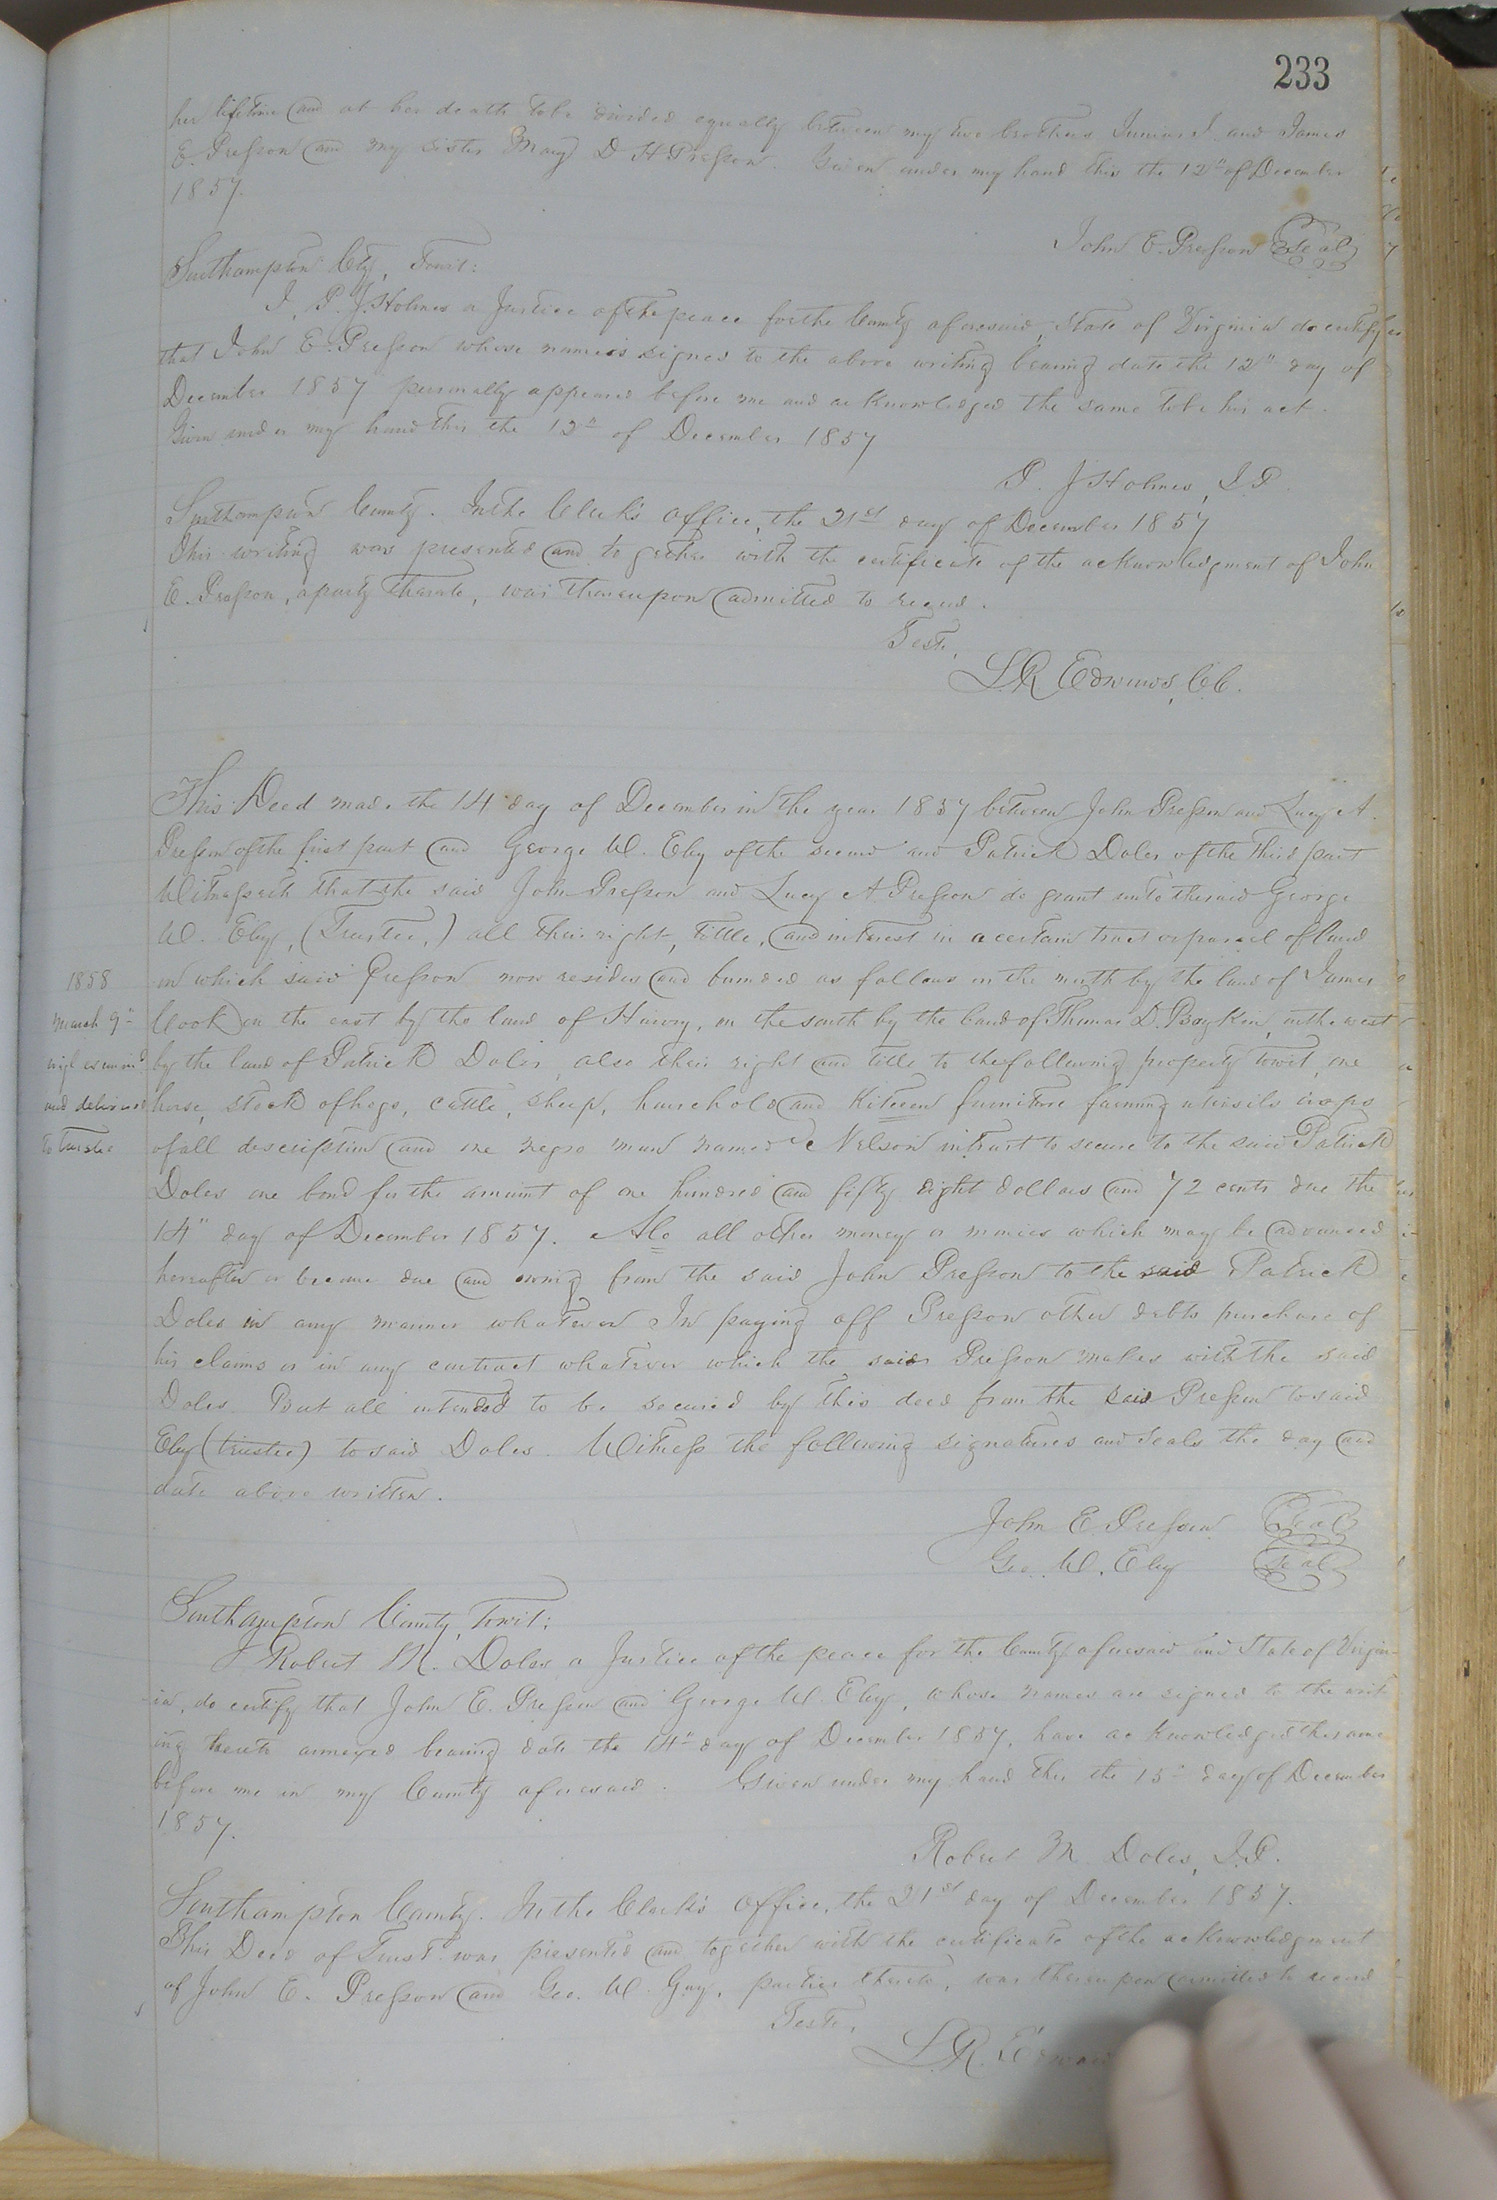 233
her lifetime and at her death to be divided equally between my two brothers Junius J. and James
E. Presson and my sister Mary D H Presson. Given under my hand this the 12" of December
1857.
John E. Presson Seal
Southampton Cty, Towit:
I, P. J. Holmes a Justice of the peace for the County aforesaid, State of Virginia do certify
that John E. Presson whose name is signed to the above writing bearing date the 12" day of
December 1857 personally appeared before me and acknowledged the same to be his act.
Given under my hand this the 12" of December 1857
P. J Holmes, J.P.
Southampton County. In the Clerk's office, the 21st day of December 1857
This writing was presented and together with the certificate of the acknowledgment of John
E. Presson, a party thereto, was thereupon admitted to record.
Teste,
L.R. Edwards, C.C.
This Deed made the 14 day of December in the year 1857 between John Presson and Lucy A.
Presson of the first part and George W. Eley of the second and Patrick Doles of the third part
Witnesseth that the said John Presson and Lucy A Presson do grant unto the said George
W. Eley, (Trustee,) all their right, tittle, and interest in a certain tract or parcel of land
in which said Presson now resides and bounded as follows on the north by the land of James
Cook on the east by the land of Harvy, on the south by the land of Thomas D. Boykin, on the west
by the land of Patrick Doles, also their right and title to the following property towit, one
horse, stock of hogs, cattle, sheep, household and Kitchen furniture farming utensils crops
of all description and one negro man named Nelson in trust to secure to the said Patrick
Doles one bond for the amount of one hundred and fifty eight dollars and 72 cents due the
14" day of December 1857. Also all other money or monies which may be advanced
hereafter or become due and owing from the said John Presson to the said Patrick
Doles in any manner whatever In paying off Presson other debts purchase of
his claims or in any contract whatever which the said Presson makes with the said
Doles. But all intended to be secured by this deed from the said Presson to said
Eley (trustee) to said Doles. Witness the following signatures and seals the day and
date above written.
1858
March 9"
and delivered
to Trustee
John E. Presson Seal
Geo. W. Eley Seal
Southampton County, Towit:
I Robert M. Doles a Justice of the peace for the County aforesaid and State of Virgin-
ia, do certify that John E. Presson and George W. Eley, whose names are signed to the writ
ing hereto annexed bearing date the 14" day of December 1857, have acknowledged the same
before me in my County aforesaid. Given under my hand this the 15" day of December
1857.
Robert M. Doles, J.P.
Southampton County. In the Clerk's Office, the 21st day of December 1857.
This Deed of Trust was presented and together with the certificate of the acknowledgment
of John E. Presson and Geo. W. Guy, parties thereto, was thereupon admitted to record
Teste,
L.R. Edwar